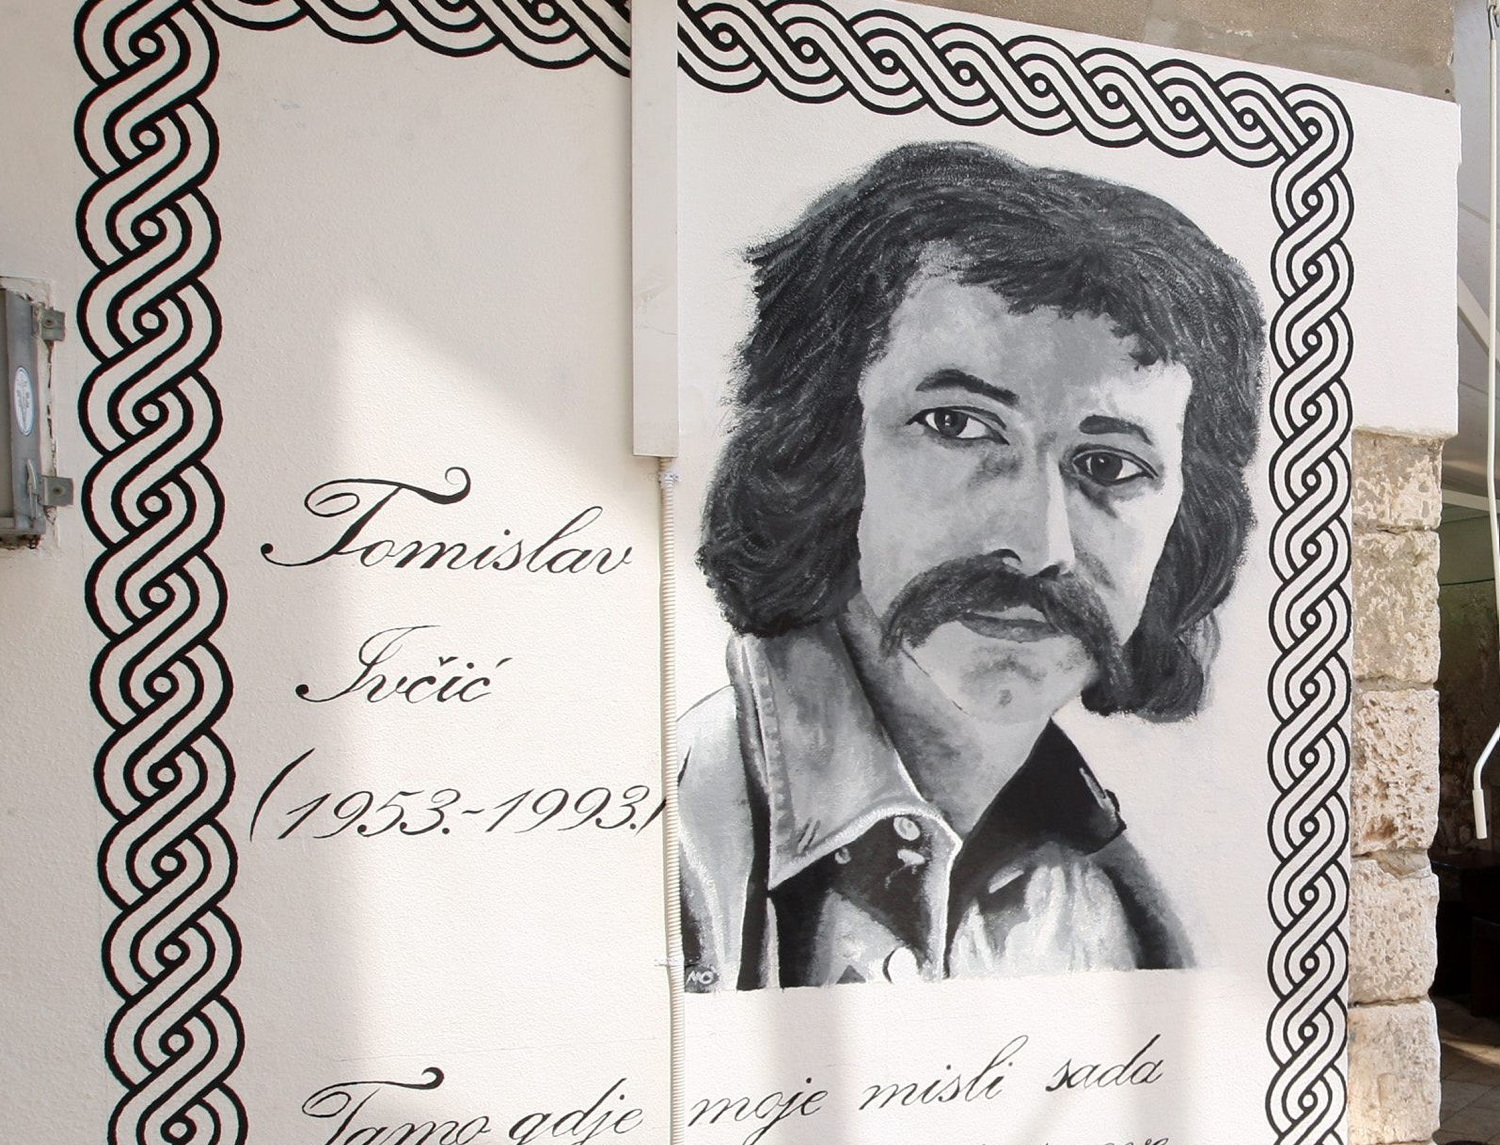 Tomislav
Ivčić
(1953.-1993.)
MO
Tamo gdje moje misli sada